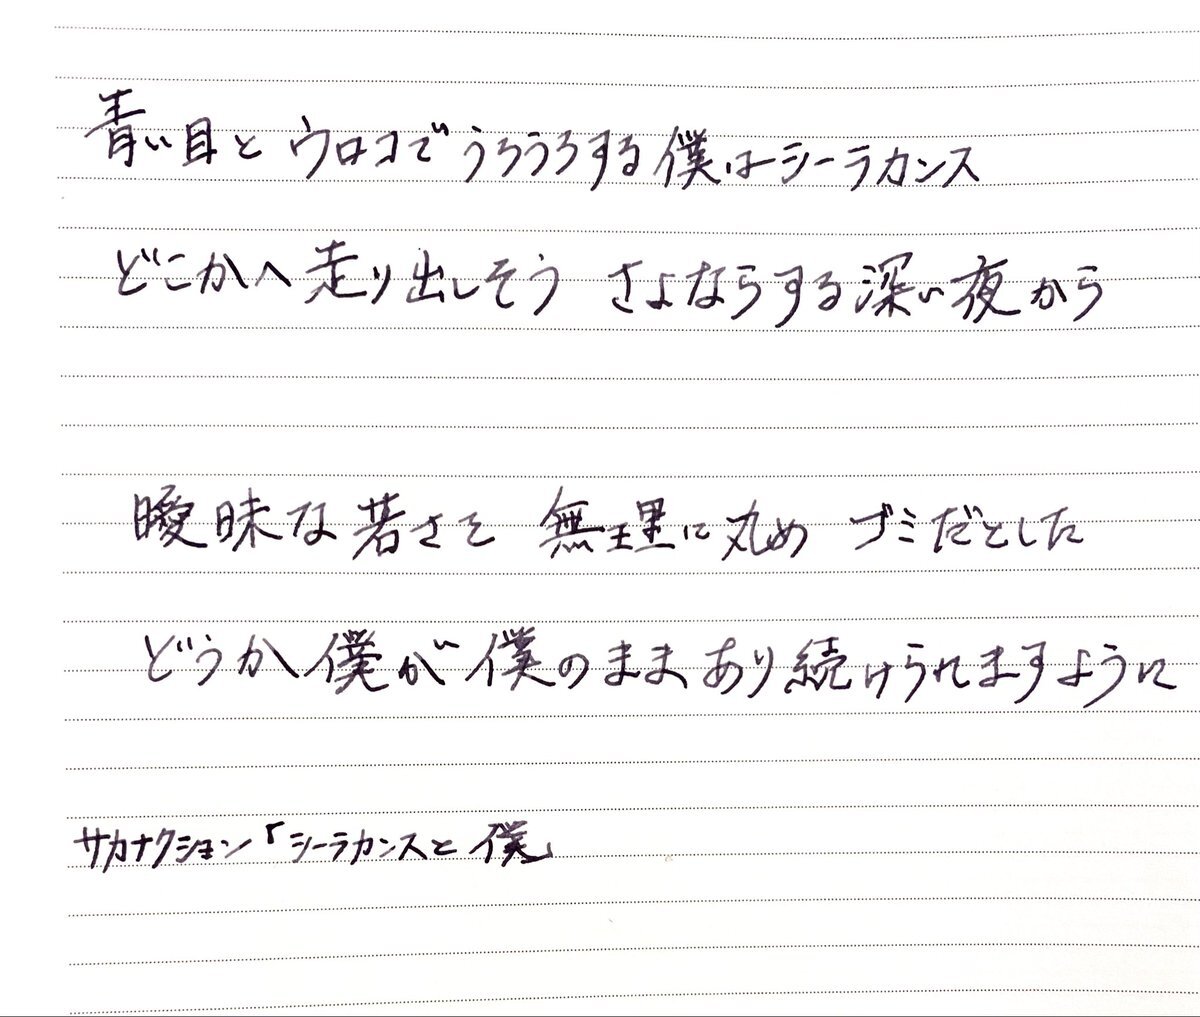 青い目とウロコでうろうろする僕はシーラカンス
どこかへ走り出しそう さよならする深い夜から
曖昧な若さを 無理に丸め ゴミだとした
どうか僕が僕のままあり続けられますように
サカナクション「シーラカンスと僕」